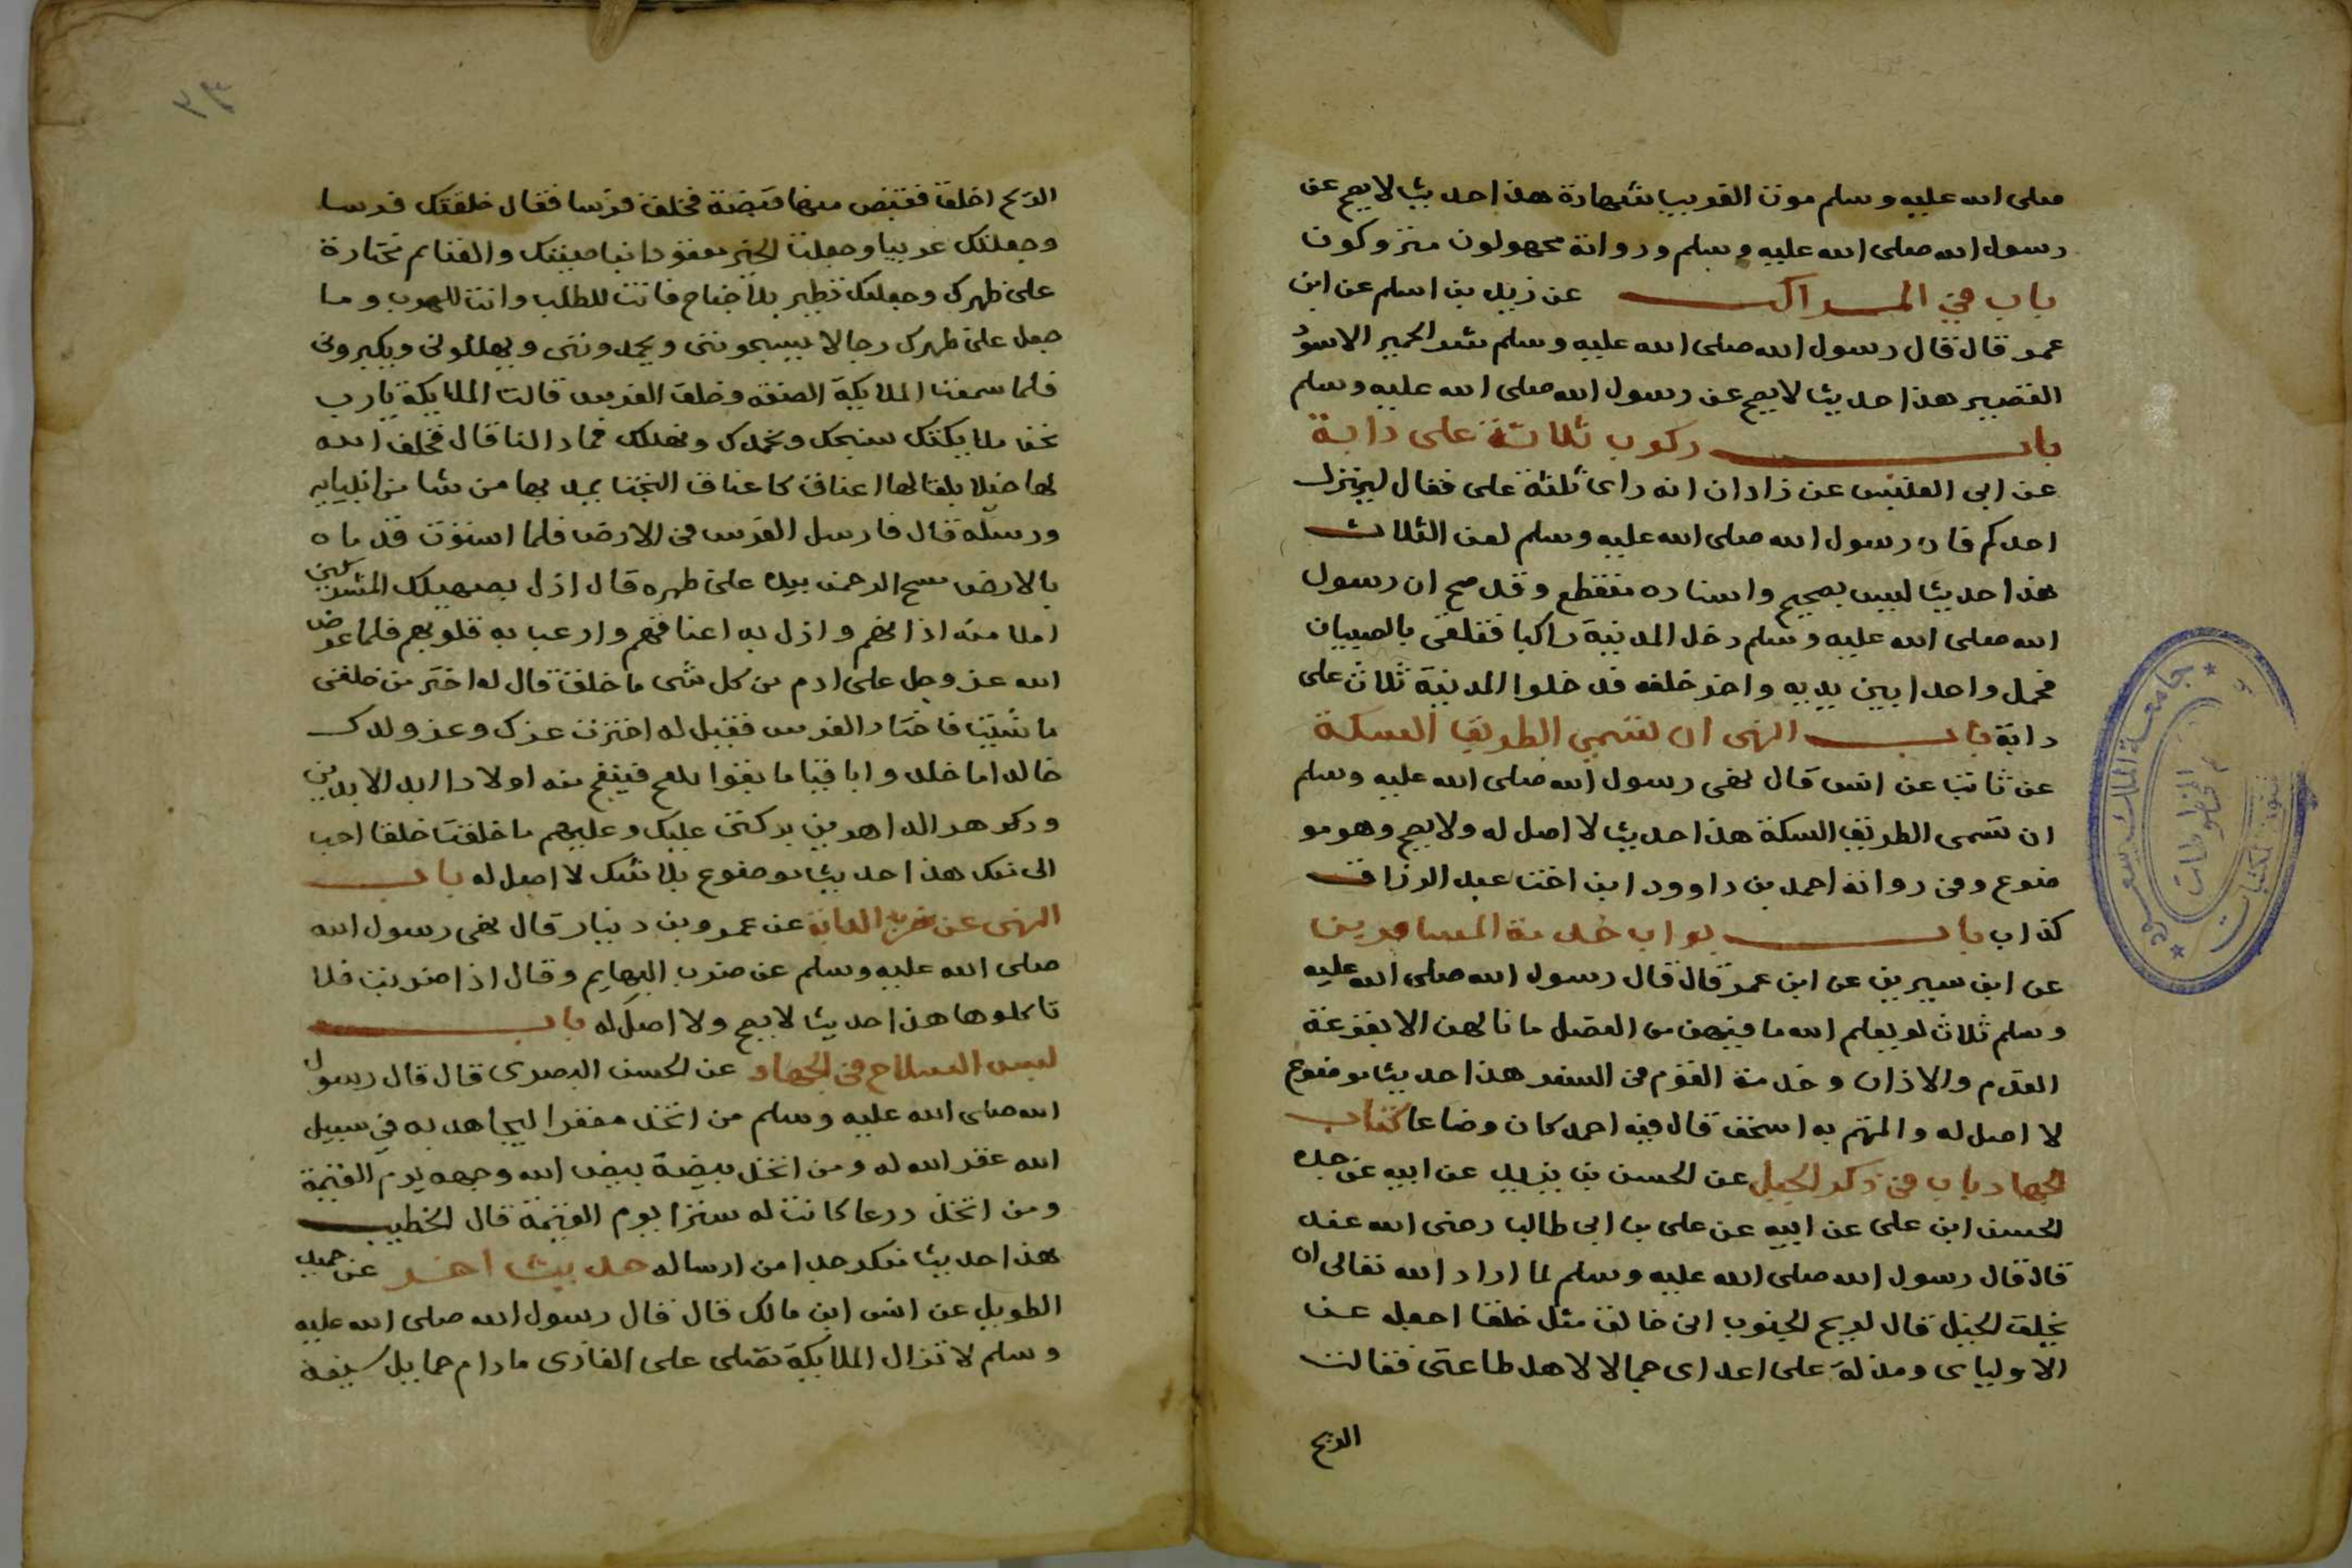 صلى الله عليه وسلم موت الغريب شهادة هذا حديث لا يصح عن
رسول الله صلى الله عليه وسلم ورواته مجهولون متروكون
باب في المراكب عن زيد بن اسلم عن ابن
عمر قال قال رسول الله صلى الله عليه وسلم شر الحمير الاسود
القصير هذا حديث لا يصح عن رسول الله صلى الله عليه وسلم
باب ركوب ثلاثة على دابة
عن ابي العنبس عن زاذان انه راى ثلثة على فقال لينزل
احدكم فان رسول الله صلى الله عليه وسلم لعن الثلاث
هذا حديث ليس بصحيح واسناده منقطع وقد صح ان رسول
الله صلى الله عليه وسلم دخل المدينة راكبا فتلقى بالصبيان
فحمل واحدا بين يديه واخر خلفه فدخلوا المدينة ثلاث على
دابة باب النهى ان تسمي الطريق السكة
عن ثابت عن انس قال نهى رسول الله صلى الله عليه وسلم
ان تسمى الطريق السكة هذا حديث لا اصل له ولا يصح وهو مو
ضوع وفي رواته احمد بن داوود ابن اخت عبد الرزاق
كذاب باب ثواب خدمة المسافرين
عن ابن سيرين عن ابن عمر قال قال رسول الله صلى الله عليه
وسلم ثلاث لو يعلم الله ما فيهن من الفضل ما نالهن الا بقرعة
القدم والاذان وخدمة القوم في السفر هذا حديث موضوع
لا اصل له والمتهم به اسحق قال فيه احمد كان وضاعا كتاب
الجهاد باب في ذكر الخيل عن الحسن بن يزيد عن ابيه عن جده
الحسن ابن على عن ابيه عن على بن ابى طالب رضى الله عنه
قال قال رسول الله صلى الله عليه وسلم لما اراد الله تعالى ان
يخلق الخيل قال لريح الجنوب انى خالق مثل خلقا اجعله عزا
الاوليائى ومذلة على اعداى جمالا لاهل طاعتى فقالت
الريح
الريح اخلق فقبض منها قبضة فخلق فرسا فقال خلقتك فرسا
وجعلتك عربيا وجعلت الخير معقودا بناصيتك والغنايم محتازة
على ظهرك وجعلتك تطير بلا جناح فانت للطلب وانت للهرب وسا
جعل على ظهرك رجالا يسبحوننى ويحمدوننى ويهللونى ويكبرونى
فلما سمعت الملايكة الصفة وخلق الفرس قالت الملايكة يارب
نحن ملايكتك نسبحك ونحمدك ونهللك فماذا لنا قال فخلق الله
لها خيلا بلقا لها اعناق كاعناق البخت يمد بها من يشا من انبيايه
ورسله قال فارسل الفرس فى الارض فلما استوت قدماه
بالارض مسح الرحمن بيده على ظهره قال اذل بصهيلك المشركين
املا منه اذانهم واذل به اعناقهم وارعب به قلوبهم فلما عرض
الله عز وجل على ادم من كل شى ما خلق قال له اختر من خلقى
ما شيت فاختار الفرس فقيل له اخترت عزك وعز ولدك
خالدا ما خلدوا باقيا ما بقوا يلقح فينتج منه اولادا ابد الابدين
ودهر الداهرين بركتى عليك وعليهم ما خلقت خلقا احب
الى منك هذا حديث موضوع بلا شك لا اصل له باب
النهى عن ضرب الدابة عن عمرو بن دينار قال نهى رسول الله
صلى الله عليه وسلم عن ضرب البهايم وقال اذا ضربت فلا
تاكلوها هذا حديث لا يصح ولا اصل له باب
لبس السلاح فى الجهاد عن الحسن البصرى قال قال رسول
الله صلى الله عليه وسلم من اتخذ مغفرا ليجاهد به في سبيل
الله غفر الله له ومن اتخذ بيضة بيض الله وجهه يوم القيمة
ومن اتخذ درعا كانت له سترا يوم القيمة قال الخطيب
هذا حديث منكر جدا من ارساله حديث اخر عن حميد
الطويل عن انس ابن مالك قال قال رسول الله صلى الله عليه
وسلم لا تزال الملايكة تصلى على الغازى مادام حمايل سيفه